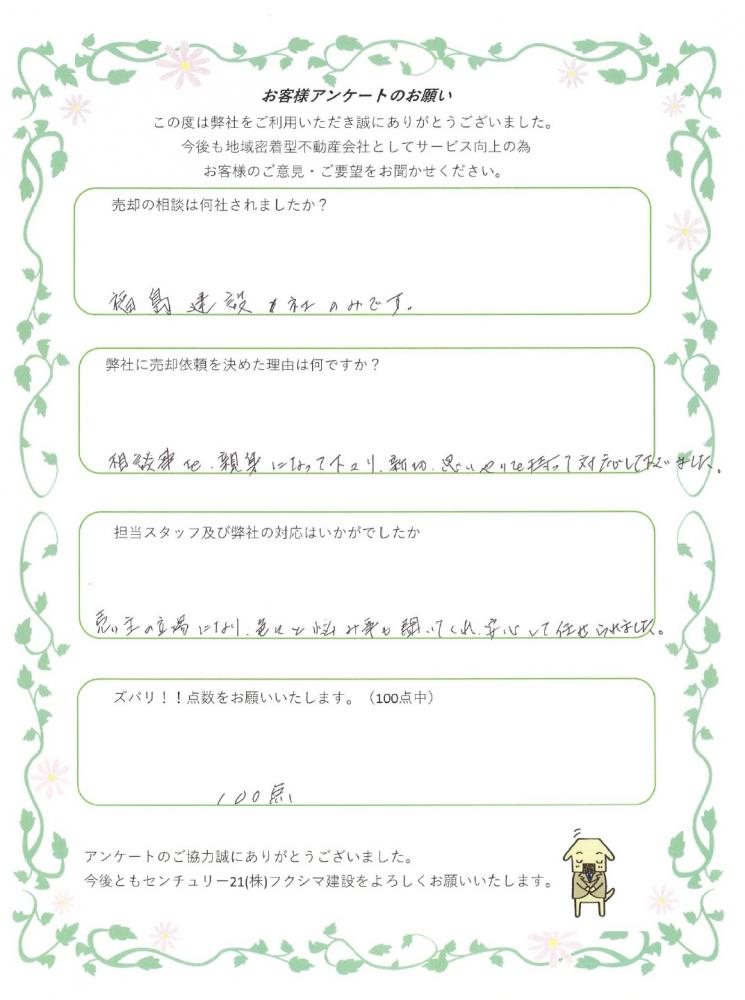 お客様アンケートのお願い
この度は弊社をご利用いただき誠にありがとうございました。
今後も地域密着型不動産会社としてサービス向上の為
お客様のご意見・ご要望をお聞かせください。
売却の相談は何社されましたか？
福島建設 社のみです。
弊社に売却依頼を決めた理由は何ですか？
相談事も、親身になって下さり、親切、思いやりを持って対応して下さいました。
担当スタッフ及び弊社の対応はいかがでしたか
売り主の立場になり、色々と悩み事も聞いてくれ、安心して任せられました。
ズバリ！！点数をお願いいたします。（100点中）
100点
アンケートのご協力誠にありがとうございました。
今後ともセンチュリー21(株)フクシマ建設をよろしくお願いいたします。